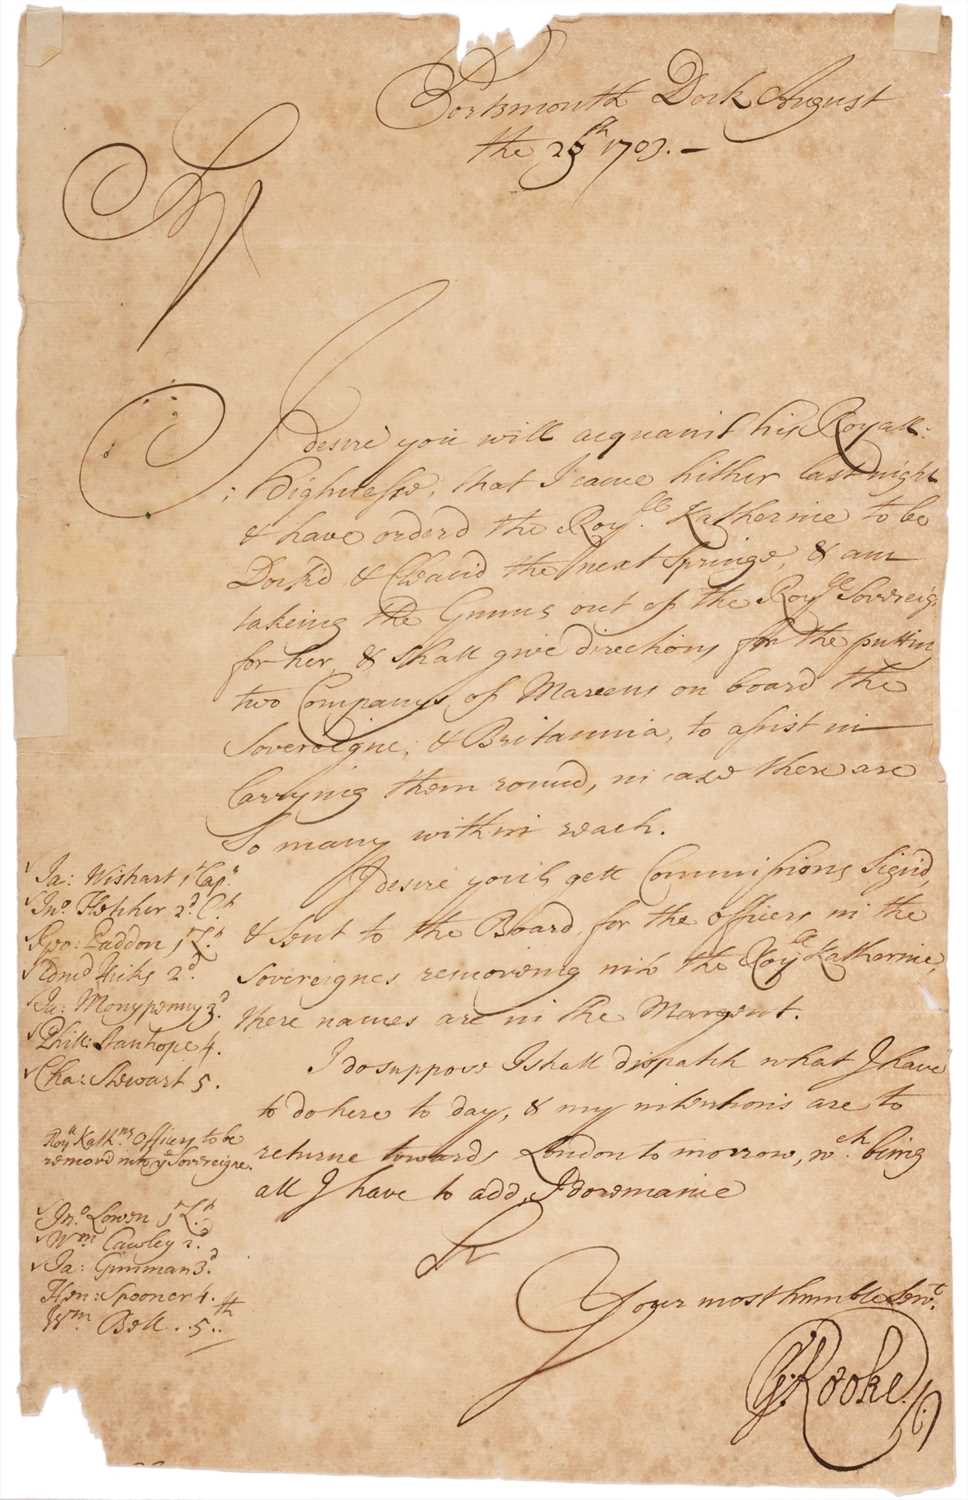 Portsmouth Dock August
the 28th 1703. -
Sr
I desire you will acquaint his Royall:
: Highnesse, that I came hither last night
& have orderd the Royll: Katherine to be
Dock'd & Clean'd the next Springs, & am
takeing the Gunns out of the Royll Sovereign
for her, & shall give directions for the putting
two Companys of Mareens on board the
Sovereigne, & Britannia, to assist in
Carrying them round, in case there are
So many within reach.
I desire you'l gett Commissions Sign'd,
& sent to the Board, for the officers in the
Sovereignes removeing into the Royll Katherine,
there names are in the Margent.
I do suppose I shall dispatch what I have
to do here to day, & my intentions are to
returne towards London to morrow, wch. being
all I have to add, I doe remaine
Sr
Your most humble Servt.
G Rooke
Ja: Wishart 1st Capt.
Jno. Fletcher 2d. Ct.
Geo: Paddon 1 Lt.
Edmd Hicks 2d.
Ja: Monypenny 3d.
Phill: Stanhope 4.
Cha: Stewart 5.
Royll Kathnes Officers to be
removd into ye Sovereigne.
Jno. Lowen 1 Lt.
Wm Cawley 2d.
Ja: Gunman 3d.
Hen: Spooner 4.
Wm Bell . . 5 . . th